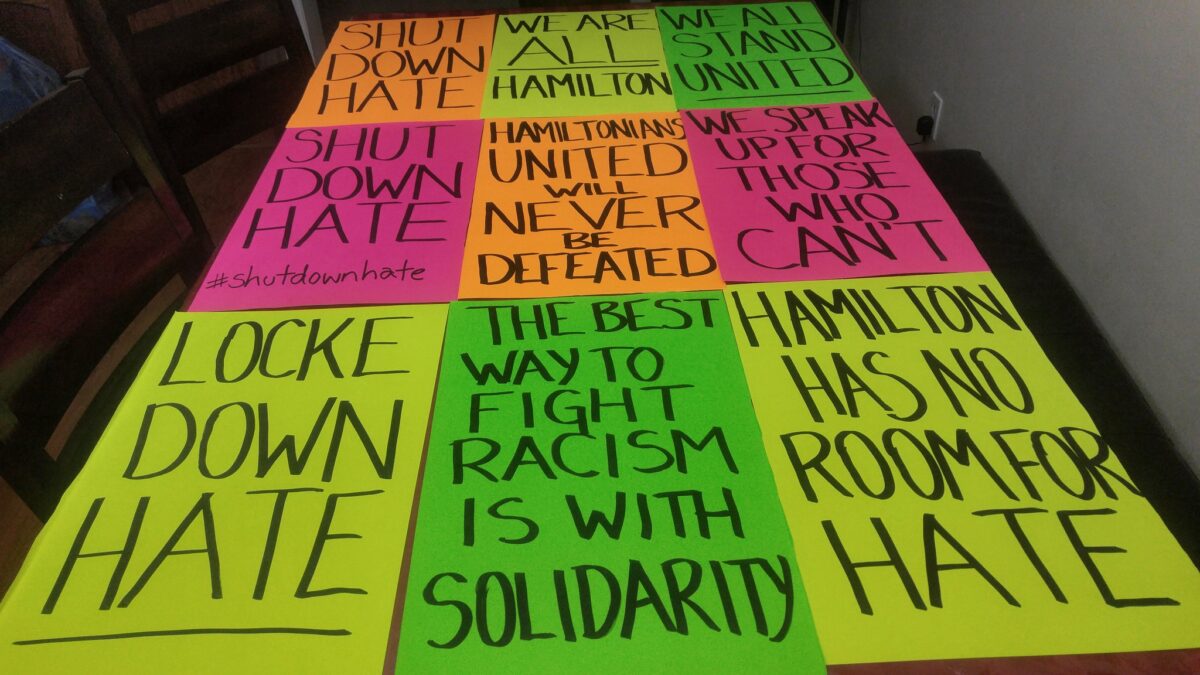 SHUT
DOWN
HATE
WE ARE
ALL
HAMILTON
WE ALL
STAND
UNITED
SHUT
DOWN
HATE
#shutdownhate
HAMILTONIANS
UNITED
WILL
NEVER
BE
DEFEATED
WE SPEAK
UP FOR
THOSE
WHO
CAN'T
LOCKE
DOWN
HATE
THE BEST
WAY TO
FIGHT
RACISM
IS WITH
SOLIDARITY
HAMILTON
HAS NO
ROOM FOR
HATE